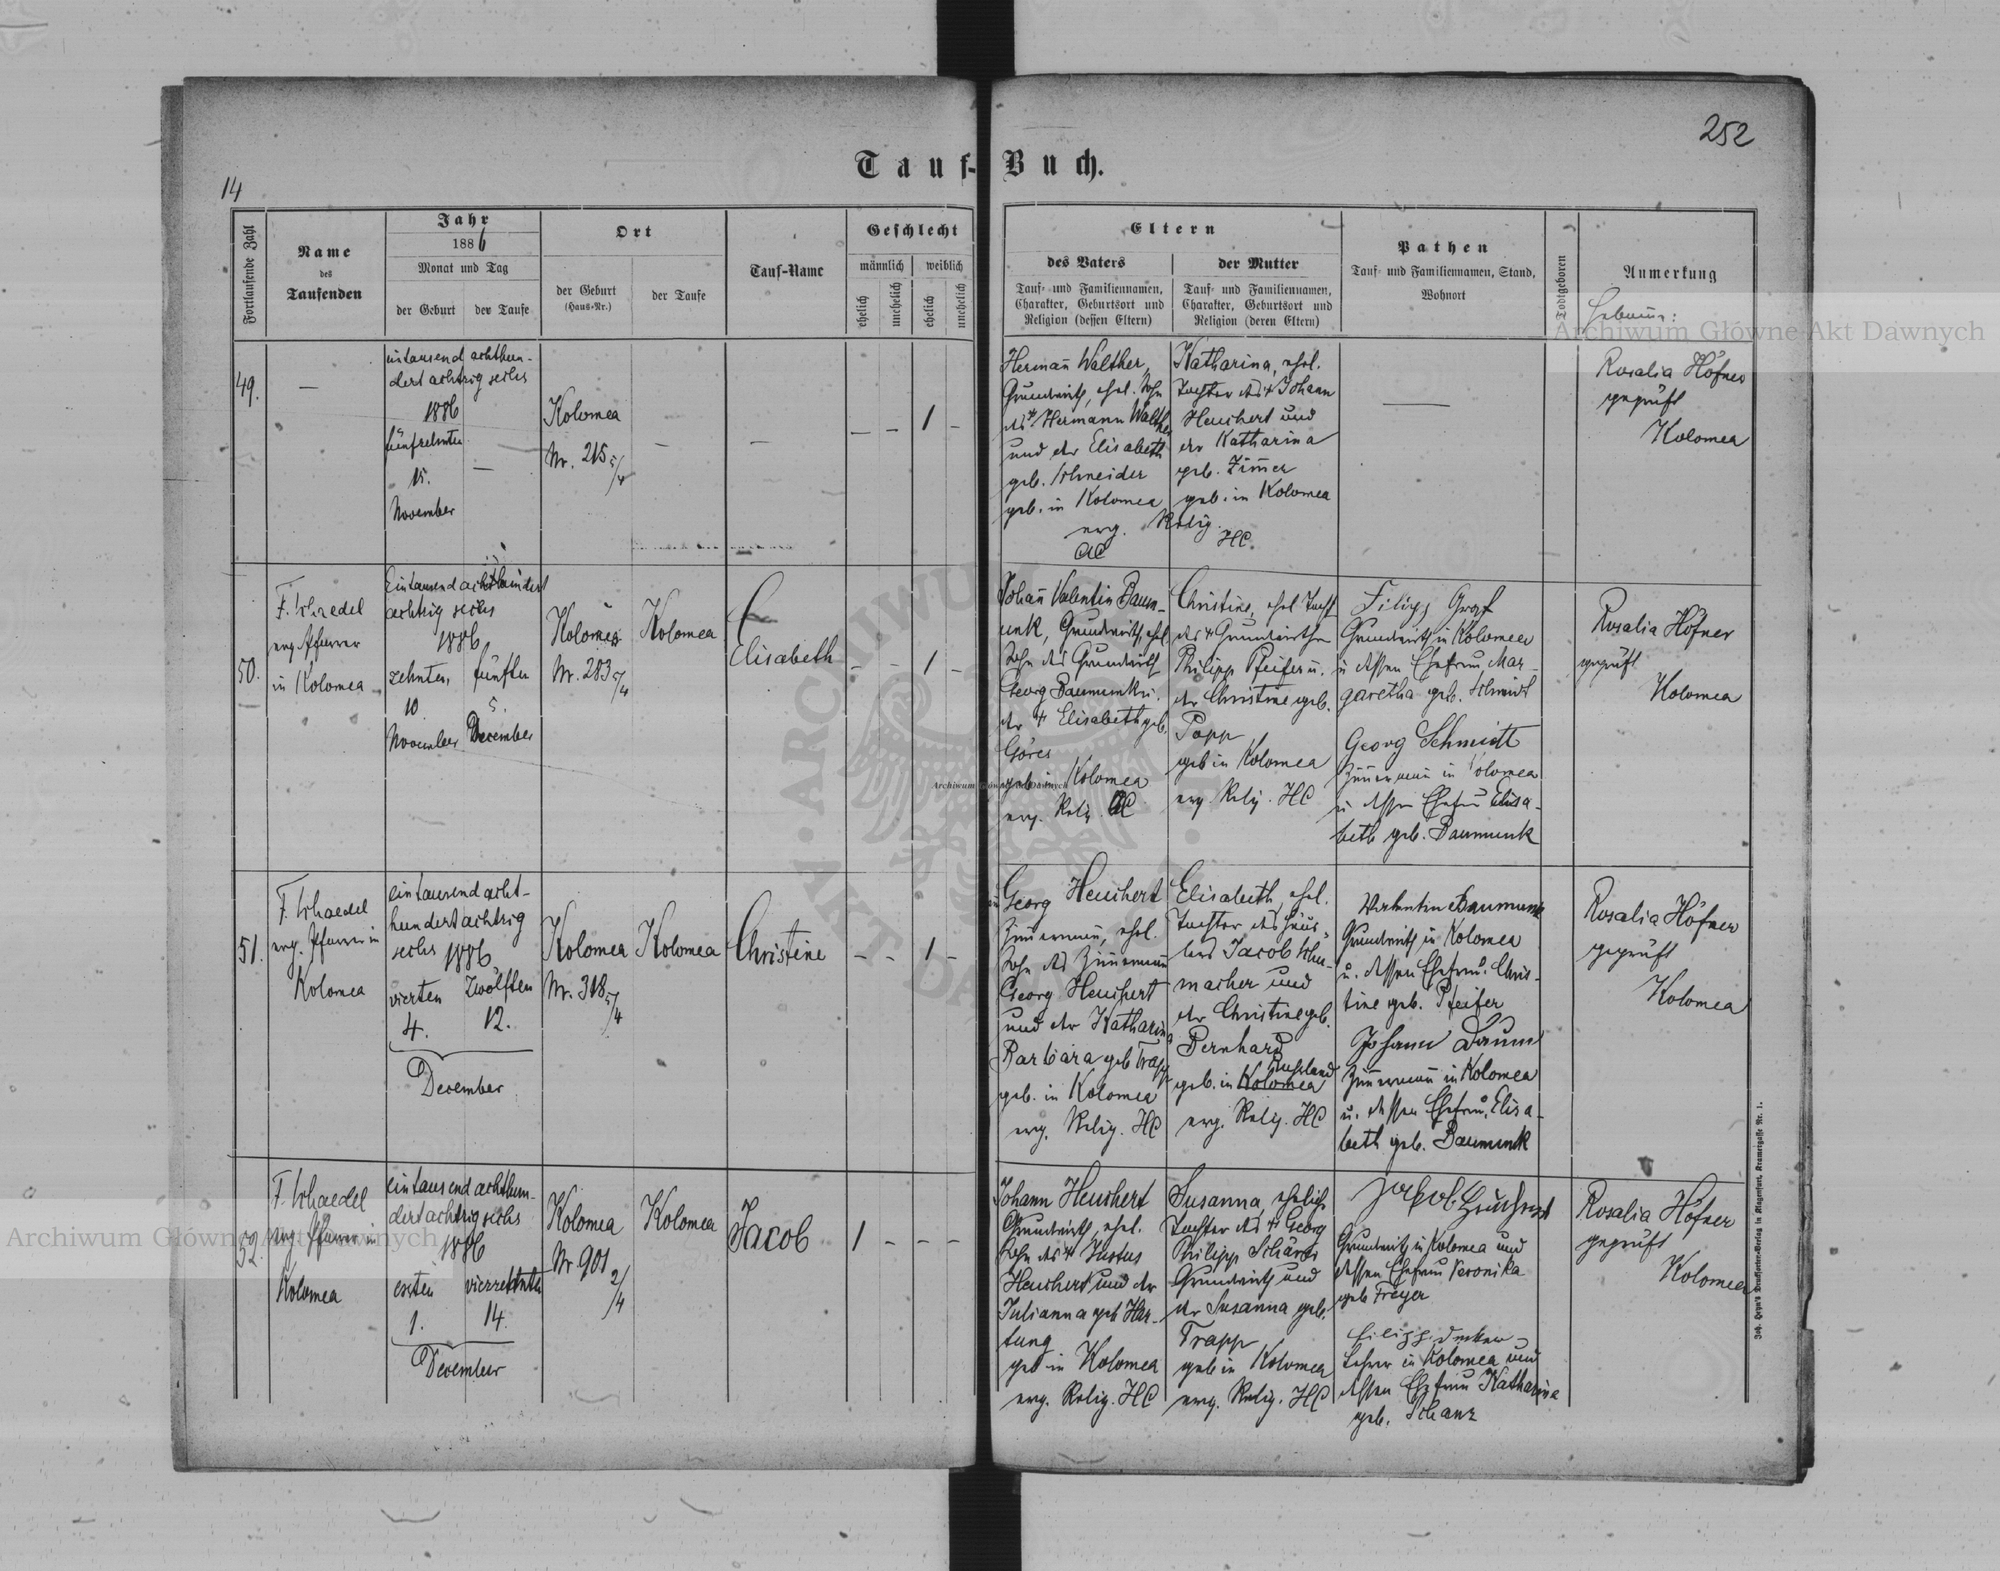 252
14
Tauf-Buch.
Fortlaufende Zahl
Name
des
Taufenden
Jahr
1886
Monat und Tag
der Geburt
der Taufe
Ort
der Geburt
(Haus-Nr.)
der Taufe
Tauf-Name
Geschlecht
männlich
weiblich
ehelich
unehelich
ehelich
unehelich
Eltern
des Vaters
Tauf- und Familiennamen,
Charakter, Geburtsort und
Religion (dessen Eltern)
der Mutter
Tauf- und Familiennamen,
Charakter, Geburtsort und
Religion (deren Eltern)
Pathen
Tauf- und Familiennamen, Stand,
Wohnort
Todtgeboren
Anmerkung
49.
—
eintausend achthun-
dert achtzig sechs
1886
fünfzehnten
15.
November
—
Kolomea
Nr. 215 5/4
—
—
— — 1 -
Hermañ Walther,
Grundwirth, ehel. Sohn
des † Hermann Walther
und der Elisabeth
geb. Schneider
geb. in Kolomea
evg. Relig.
AC
Katharina, ehel.
Tochter des † Johann
Heuchert und
der Katharina
geb. Zim̄er
geb. in Kolomea
HC.
—
Rosalia Höfner
geprüft
Kolomea
50.
F. Schaedel
evg. Pfarrer
in Kolomea
Eintausend achthundert
achtzig sechs
1886
zehnten
10
November
fünften
5.
December
Kolomea
Nr. 283 5/4
Kolomea
Elisabeth
- - 1 -
Johañ Valentin Baum-
unk, Grundwirth, ehel
Sohn des Grundwirth
Georg Baumunk u.
der † Elisabeth geb.
Göres
geb. in Kolomea
evg. Relig. AC
Christine, ehel Tocht
des † Grundwirthen
Philipp Pfeifer u.
der Christine geb.
Popp
geb in Kolomea
evg. Relig. HC
Filipp Graf
Grundwirth in Kolomea
u dessen Ehefrau Mar-
garetha geb. Schmidt
Georg Schmidt
Zim̄erman̄ in Kolomea
u dessen Ehefrau Elisa-
beth geb. Baumunk
Rosalia Höfner
geprüft
Kolomea
51.
F. Schaedel
evg. Pfarrer in
Kolomea
eintausend acht-
hundert achtzig
sechs 1886
vierten
4.
zwölften
12.
December
Kolomea
Nr. 318 5/4
Kolomea
Christine
- - 1 -
Georg Heuchert
Zim̄erman̄, ehel.
Sohn des Zim̄erman̄
Georg Heuchert
und der Katharina
Barbara geb Trapp
geb. in Kolomea
evg. Relig. HC
Elisabeth, ehel.
Tochter des Häus-
lers Jacob Schu-
macher und
der Christine geb.
Bernhard
Russland
geb. in Kolomea
evg. Relig. HC
Valentin Baumunk
Grundwirth in Kolomea
u. dessen Ehefrau Chris-
tine geb. Pfeifer
Johann Baum
Zim̄erman̄ in Kolomea
u. dessen Ehefrau Elisa-
beth geb. Baumunk
Rosalia Höfner
geprüft
Kolomea
52.
F. Schaedel
evg. Pfarrer in
Kolomea
eintausend achthun-
dert achtzig sechs
1886
ersten
1.
vierzehnten
14.
December
Kolomea
Nr. 901 2/4
Kolomea
Jacob
1 - - -
Johann Heuchert
Grundwirth, ehel.
Sohn des † Justus
Heuchert und der
Julianna geb Har-
tung
geb in Kolomea
evg. Relig. HC
Susanna, ehelich
Tochter des † Georg
Philipp Schärer
Grundwirth und
der Susanna geb.
Trapp
geb in Kolomea
evg. Relig. HC
Jakob Heuchert
Grundwirth in Kolomea und
dessen Ehefrau Veronika
geb Freyer
Filipp Decker
Lehrer in Kolomea und
dessen Ehefrau Katharina
geb. Schanz
Rosalia Höfner
geprüft
Kolomea
Joh. Heyn's Drucksorten-Verlag in Klagenfurt, Kramergasse Nr. 1.
Archiwum Główne Akt Dawnych
Archiwum Główne Akt Dawnych
Archiwum Główne Akt Dawnych